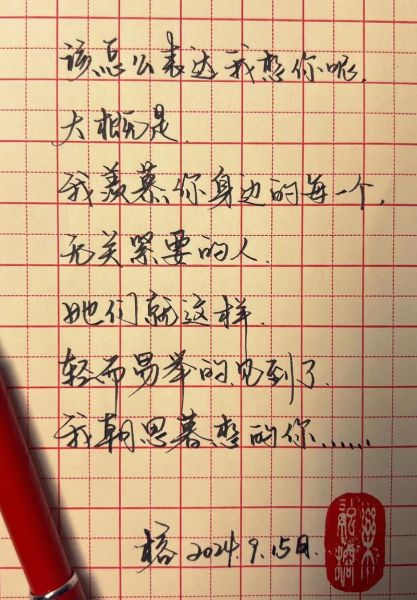 该怎么表达我想你呢,
大概是.
我羡慕你身边的每一个,
无关紧要的人.
她们就这样.
轻而易举的见到了.
我朝思暮想的你......
2024.9.15日.